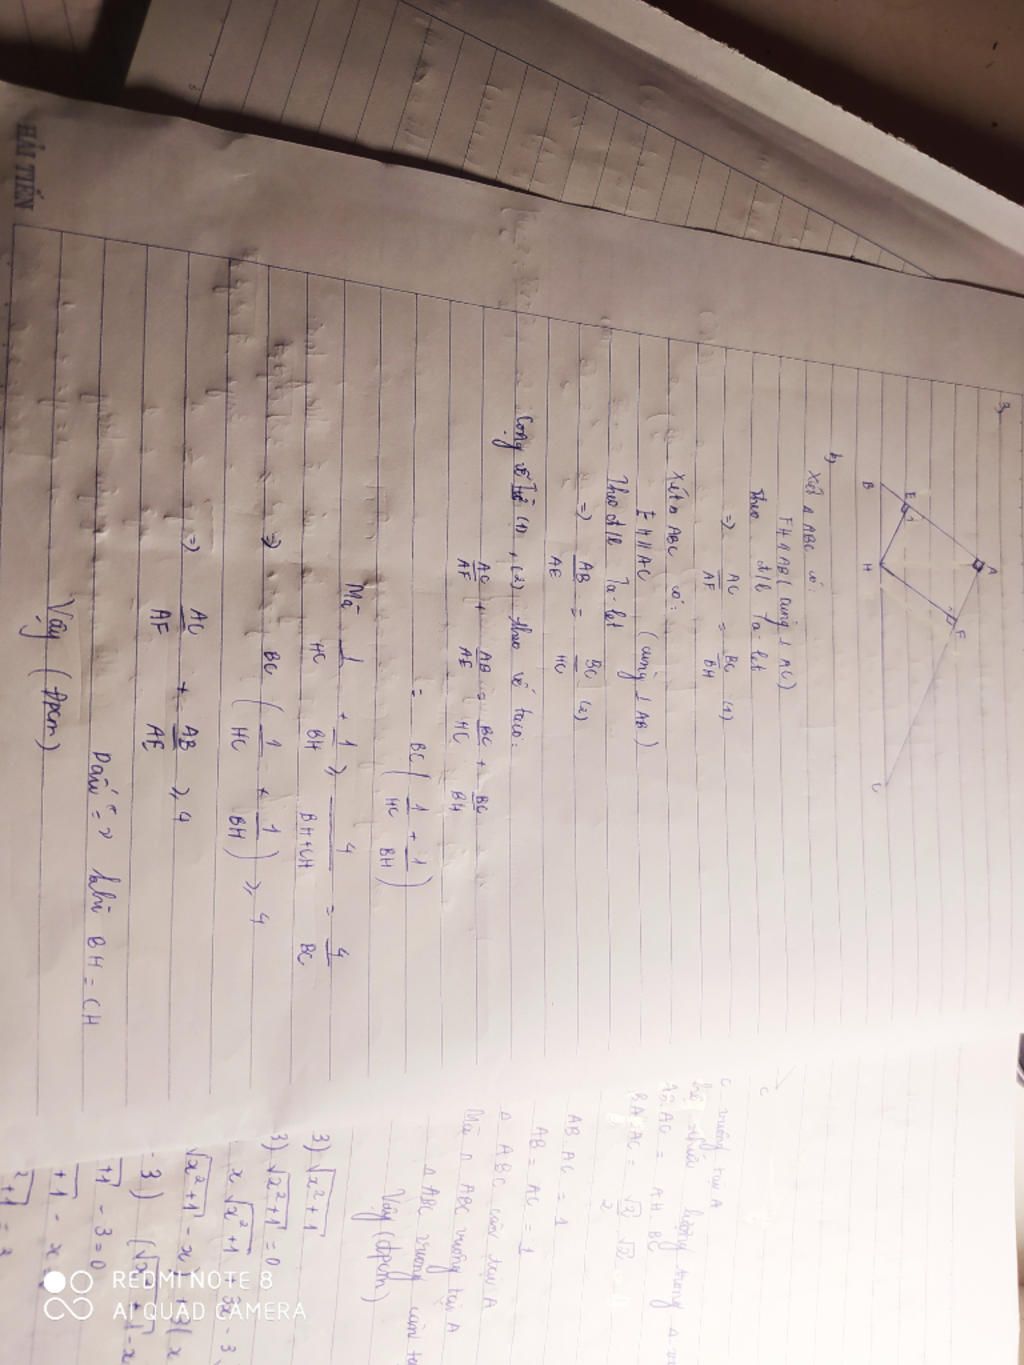 3,
A
E
F
B
H
C
b,
Xét Δ ABC có:
FH // AB ( cùng ⊥ AC)
theo đ/l Ta-let
=> AC/AF = BC/BH (1)
Xét Δ ABC có:
EH // AC (cùng ⊥ AB)
Theo đ/l Ta-let
=> AB/AE = BC/HC (2)
Cộng vế (1), (2) theo vế ta có:
AC/AF + AB/AE = BC/HC + BC/BH
= BC ( 1/HC + 1/BH )
Mà 1/HC + 1/BH ≥ 4/BH+CH = 4/BC
=> BC ( 1/HC + 1/BH ) ≥ 4
=> AC/AF + AB/AE ≥ 4
Dấu "=" khi BH = CH
Vậy (đpcm)
HẢI TIẾN
C
vuông tại A
lượng trong Δ
AC = AH. BC
AC = √2/2 . √2
AB. AC = 1
AB = AC = 1
Δ ABC cân tại A
Mà Δ ABC vuông tại A
Δ ABC vuông cân
Vậy (đpcm)
3) √x²+1
3) √x²+1 = 0
x √x²+1
√x²+1 - x
- 3)
+1 - 3 = 0
+1 - x
REDMI NOTE 8
AI QUAD CAMERA